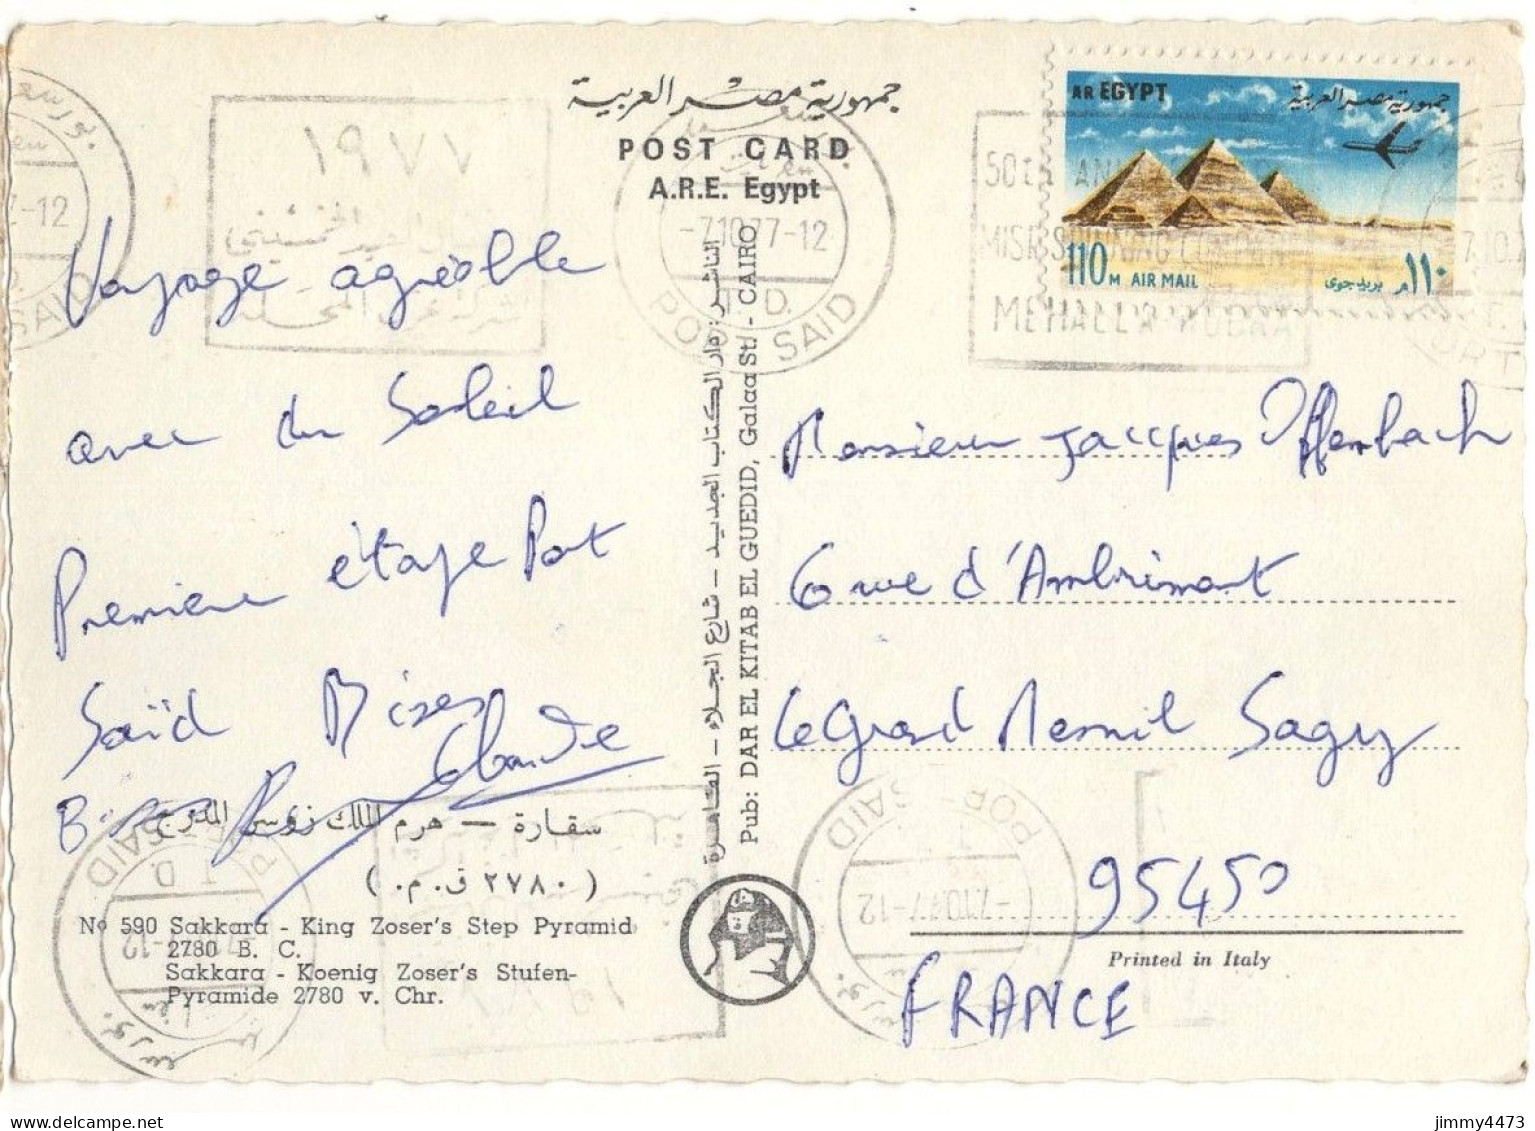 جمهورية مصر العربية
POST CARD
A.R.E. Egypt
AR EGYPT
جمهورية مصر العربية
110 M AIR MAIL
بريد جوى ١١٠ م
١٩٧٧
50th ANN
MISR SPINNING COMPAN
MEHALLA KUBRA
بورسعيد
-7.10.77-12
T.D.
PORT SAID
Voyage agréable
avec du Soleil
Première étape Port
Saïd Bises
Claude
Monsieur Jacques Offenbach
6 rue d'Ambrimont
Le Grand Mesnil Sagy
95450
FRANCE
الناشر: دار الكتاب الجديد – شارع الجلاء – القاهرة
Pub: DAR EL KITAB EL GUEDID, Galaa St. - CAIRO
سقارة — هرم الملك زوسر المدرج
( ٢٧٨٠ ق.م. )
No 590 Sakkara - King Zoser's Step Pyramid
2780 B. C.
Sakkara - Koenig Zoser's Stufen-
Pyramide 2780 v. Chr.
Printed in Italy
PORT-SAID
T.D.
-7.10.77-12
jimmy4473